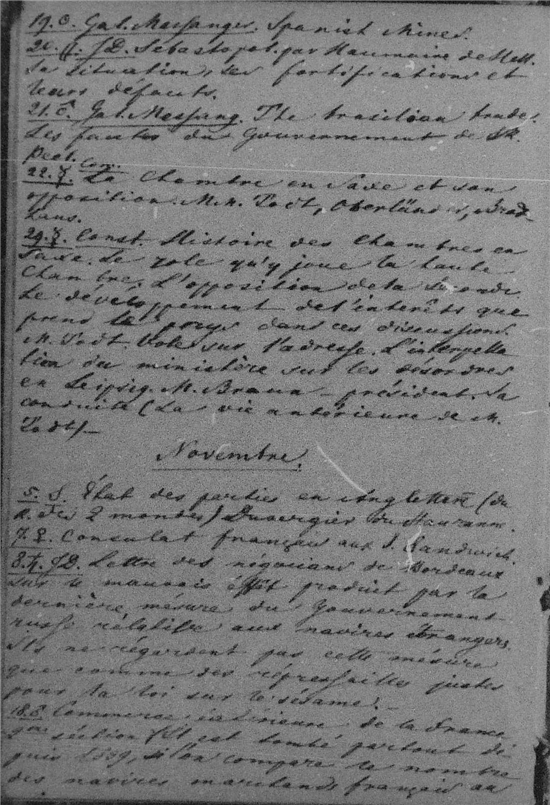 19. c. Gal. Messanger. Spanish Mines.
20. JD. Sebastopol. par Haumaire de Hell.
Sa situation, ses fortifications et
leurs défauts.
21. c. Gal. Messang. The brasilian trade.
Les fautes du Gouvernement de
Peel.
22. 7. Con. La Chambre en Saxe et son
opposition. M.M. Todt, Oberländer,
haus.
29. 7. Const. Histoire des Chambres en
Saxe. Le role qu'y joue la haute
Chambre, L'opposition de la seconde
Le dévéloppement de l'interêts que
prend le pays dans ces discussions.
M. Todt. Vote sur l'adresse. L'interpella
tion du ministère sur les desordres
en Leipsig. M. Braun – président. Sa
conduite (La vie antérieure de M.
Todt) –
Novembre.
5. S. État des parties en Angleterre (du
R. des 2 mondes) Duvergier du Hauranne.
7. Consulat français aux I. Sandwich.
8. JD. Lettre des négocians de Bordeaux
sur le mauvais éffèt produit par la
dernière mésure du Gouvernement
russe rélatife aux navires étrangers.
ils ne régardent pas cette mésure
que comme des répressailles justes
pour la loi sur le sésame. –
18. Commerce éxterieure de la France
section est tombé partout dé
puis 1839, si l'on compare le nombre
des navires marchands français au